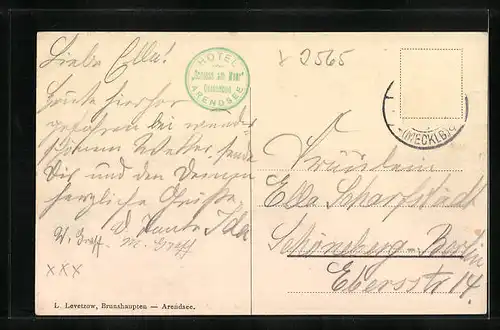 Liebe Ella!
Heute hierher
gefahren bei wunder
schönem Wetter sende
Dir und den Deinen
herzliche Grüße
D. Tante Ida
W. Greff. M. Greff
xxx
HOTEL
"Schloss am Meer"
Ostseebad
ARENDSEE
x 2565
(MECKLB)
Fräulein
Ella Scharfstädt
Schöneberg - Berlin
Ebersstr 14.
L. Levetzow, Brunshaupten — Arendsee.